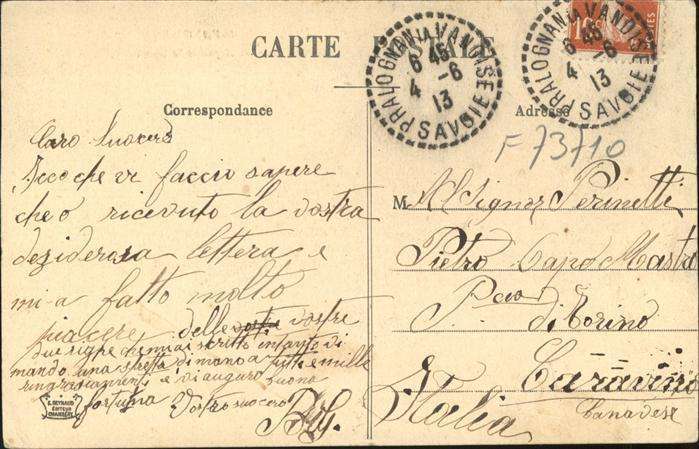 CARTE POSTALE
Correspondance
Adresse
PRALOGNAN LA VANOISE
6 45
4 - 6
13
SAVOIE
PRALOGNAN LA VANOISE
6 45
4 - 6
13
SAVOIE
10c
F 73710
Caro Suocero
Ecco che vi faccio sapere
che o ricevuto la vostra
deziderosa lettera e
mi-a fatto molto
piacere delle vostri
due righe che mi ai scritto intanto vi
mando una stretta di mano a tutti e mille
ringraziamenti e vi auguro buona
fortuna Vostro suocero
M Al Signor Perinetti
Pietro Capo Mastro
di Torino
Caravino
Italia Canavese
E. REYNAUD
EDITEUR
CHAMBÉRY